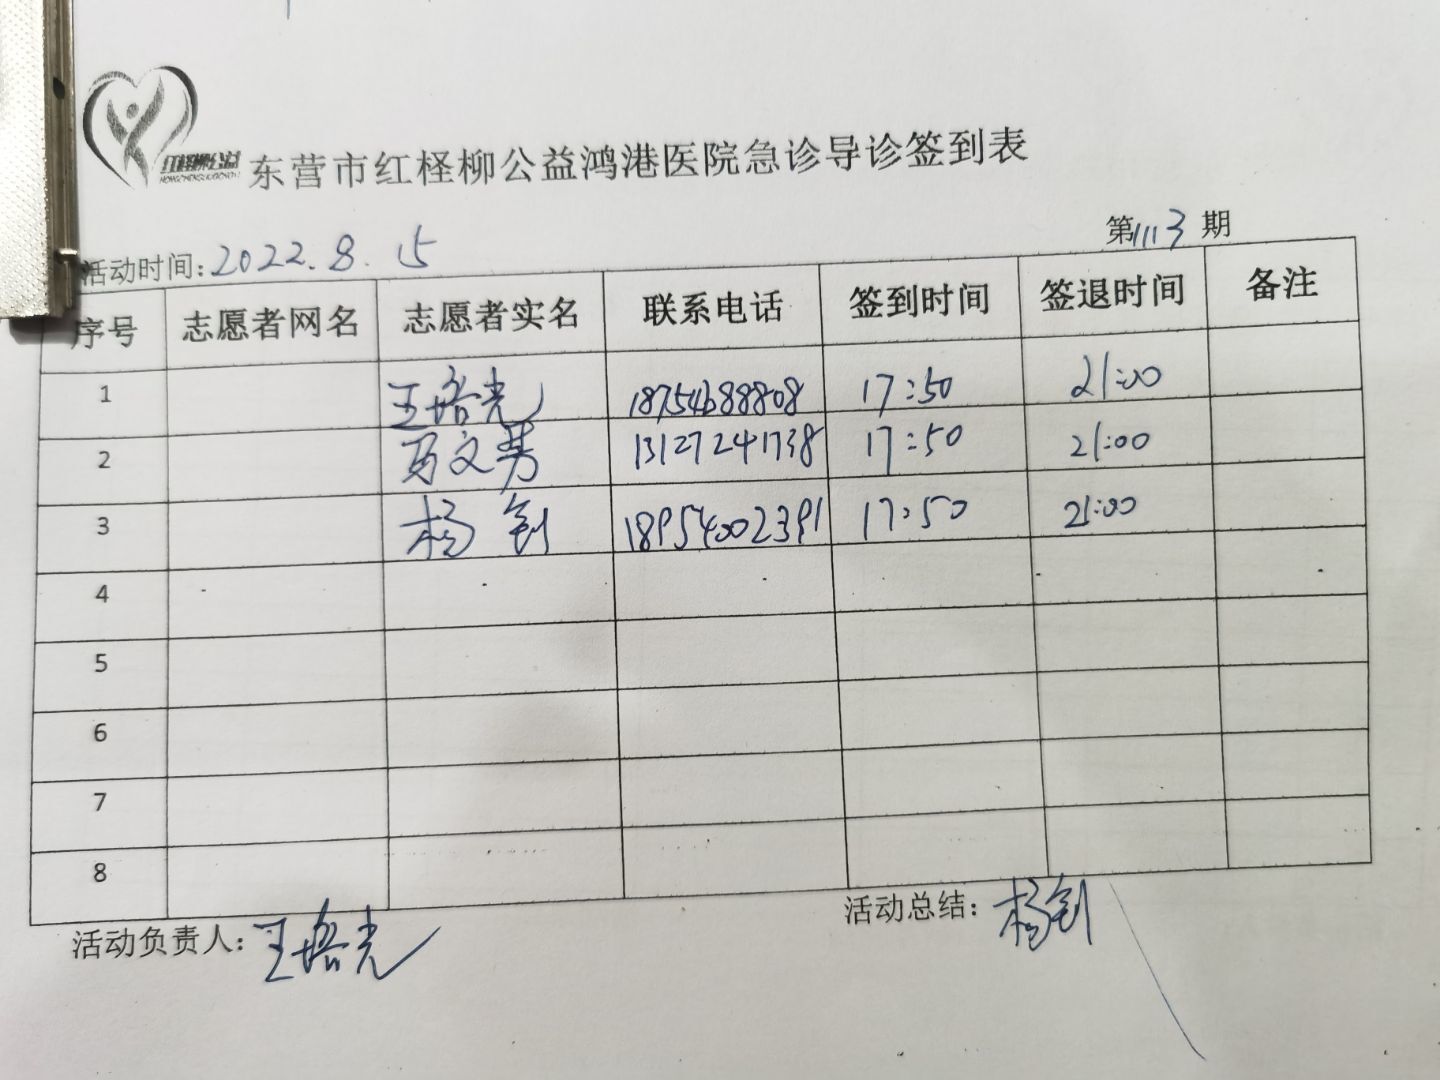 东营市红柽柳公益鸿港医院急诊导诊签到表
第1113期
活动时间:2022.8.15
序号 志愿者网名 志愿者实名 联系电话 签到时间 签退时间 备注
1 王培光 18754688808 17:50 21:00
2 贾文慧 13127241738 17:50 21:00
3 杨钊 18954002391 17:50 21:00
4
5
6
7
8
活动负责人:王培光
活动总结:杨钊